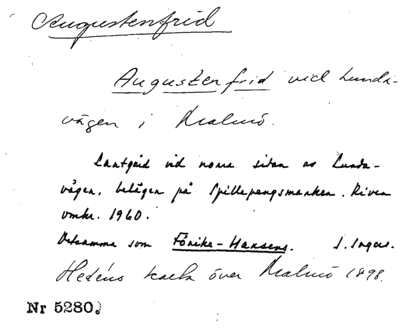 Augustenfrid
Augustenfrid vid Lunda-
vägen i Malmö.
Lantgård vid norra sidan av Lunda-
vägen, belägen på Spillepengsmarken. Riven
omkr. 1960.
Detsamma som Förike-Hansens. S. Ingers.
Hedéns karta över Malmö 1898.
Nr 5280.